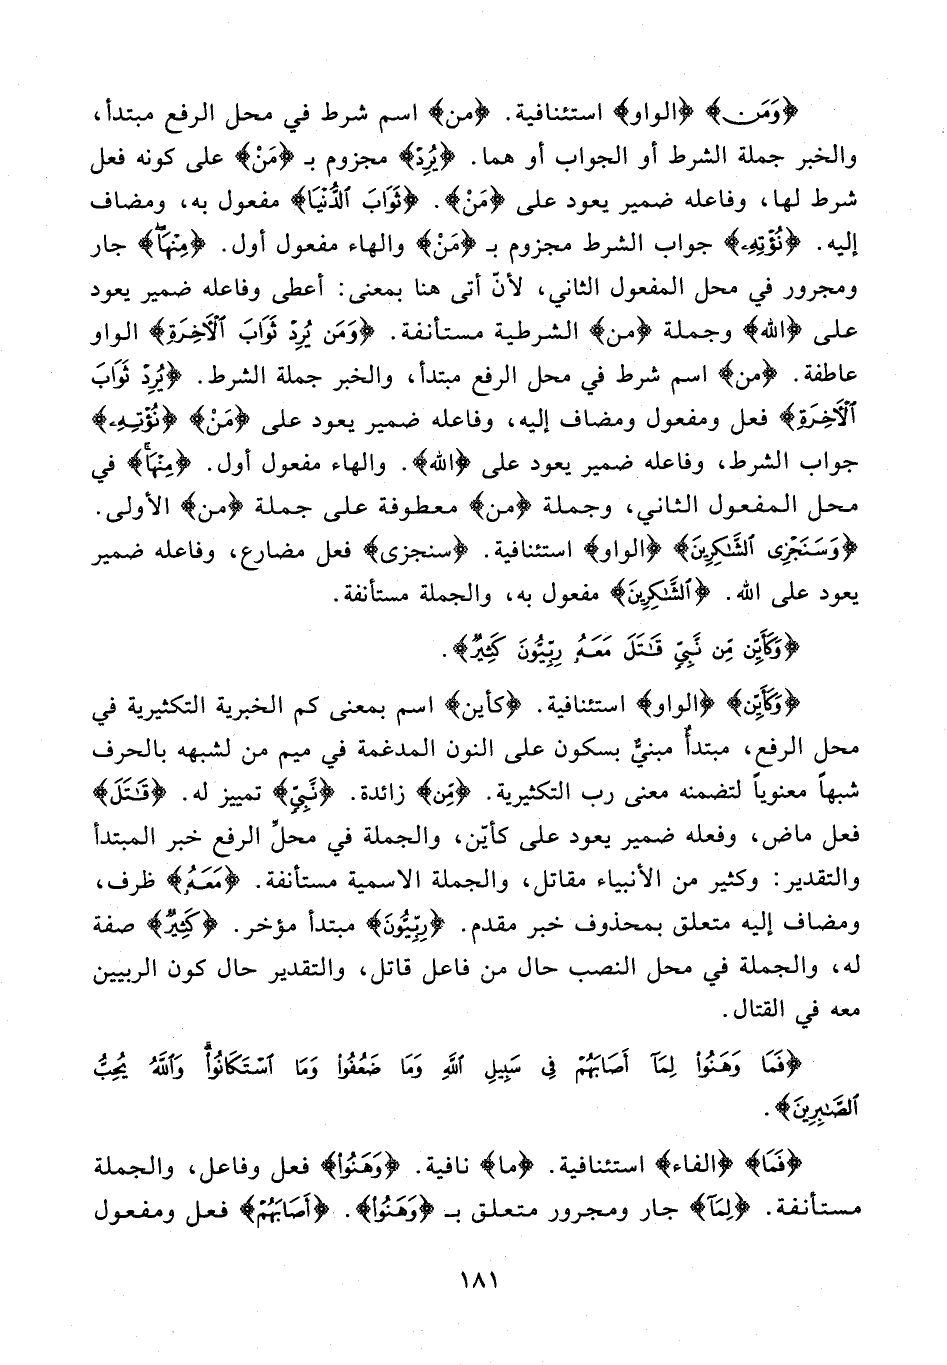 ﴿وَمَن﴾ ﴿الواو﴾ استئنافية. ﴿من﴾ اسم شرط في محل الرفع مبتدأ،
والخبر جملة الشرط أو الجواب أو هما. ﴿يُرِدْ﴾ مجزوم بـ ﴿مَنْ﴾ على كونه فعل
شرط لها، وفاعله ضمير يعود على ﴿مَنْ﴾. ﴿ثَوَابَ ٱلدُّنْيَا﴾ مفعول به، ومضاف
إليه. ﴿نُؤْتِهِۦ﴾ جواب الشرط مجزوم بـ ﴿مَنْ﴾ والهاء مفعول أول. ﴿مِنْهَاۖ﴾ جار
ومجرور في محل المفعول الثاني، لأنّ أتى هنا بمعنى: أعطى وفاعله ضمير يعود
على ﴿الله﴾ وجملة ﴿من﴾ الشرطية مستأنفة. ﴿وَمَن يُرِدْ ثَوَابَ ٱلْآخِرَةِ﴾ الواو
عاطفة. ﴿من﴾ اسم شرط في محل الرفع مبتدأ، والخبر جملة الشرط. ﴿يُرِدْ ثَوَابَ
ٱلْآخِرَةِ﴾ فعل ومفعول ومضاف إليه، وفاعله ضمير يعود على ﴿مَنْ﴾ ﴿نُؤْتِهِۦ﴾
جواب الشرط، وفاعله ضمير يعود على ﴿الله﴾. والهاء مفعول أول. ﴿مِنْهَاۚ﴾ في
محل المفعول الثاني، وجملة ﴿من﴾ معطوفة على جملة ﴿من﴾ الأولى.
﴿وَسَنَجْزِى ٱلشَّـٰكِرِينَ﴾ ﴿الواو﴾ استئنافية. ﴿سنجزى﴾ فعل مضارع، وفاعله ضمير
يعود على الله. ﴿ٱلشَّـٰكِرِينَ﴾ مفعول به، والجملة مستأنفة.
﴿وَكَأَيِّن مِّن نَّبِىٍّ قَـٰتَلَ مَعَهُۥ رِبِّيُّونَ كَثِيرٌ﴾.
﴿وَكَأَيِّن﴾ ﴿الواو﴾ استئنافية. ﴿كأين﴾ اسم بمعنى كم الخبرية التكثيرية في
محل الرفع، مبتدأٌ مبنيٌّ بسكون على النون المدغمة في ميم من لشبهه بالحرف
شبهاً معنوياً لتضمنه معنى رب التكثيرية. ﴿مِّن﴾ زائدة. ﴿نَّبِىٍّ﴾ تمييز له. ﴿قَـٰتَلَ﴾
فعل ماض، وفعله ضمير يعود على كأيّن، والجملة في محلٌّ الرفع خبر المبتدأ
والتقدير: وكثير من الأنبياء مقاتل، والجملة الاسمية مستأنفة. ﴿مَعَهُۥ﴾ ظرف،
ومضاف إليه متعلق بمحذوف خبر مقدم. ﴿رِبِّيُّونَ﴾ مبتدأ مؤخر. ﴿كَثِيرٌ﴾ صفة
له، والجملة في محل النصب حال من فاعل قاتل، والتقدير حال كون الربيين
معه في القتال.
﴿فَمَا وَهَنُوا۟ لِمَآ أَصَابَهُمْ فِى سَبِيلِ ٱللَّهِ وَمَا ضَعُفُوا۟ وَمَا ٱسْتَكَانُوا۟ۗ وَٱللَّهُ يُحِبُّ
ٱلصَّـٰبِرِينَ﴾.
﴿فَمَا﴾ ﴿الفاء﴾ استئنافية. ﴿ما﴾ نافية. ﴿وَهَنُوا۟﴾ فعل وفاعل، والجملة
مستأنفة. ﴿لِمَآ﴾ جار ومجرور متعلق بـ ﴿وَهَنُوا۟﴾. ﴿أَصَابَهُمْ﴾ فعل ومفعول
١٨١